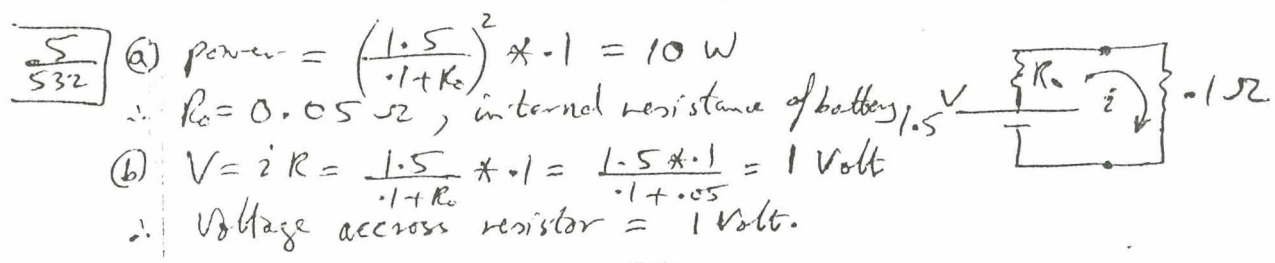 5/532 (a) power = (1.5/.1+R₀)² * .1 = 10 W
∴ R₀ = 0.05 Ω, internal resistance of battery
(b) V = iR = 1.5/.1+R₀ * .1 = 1.5*.1/.1+.05 = 1 Volt
∴ Voltage accross resistor = 1 Volt.
R₀
i
.1Ω
1.5 V